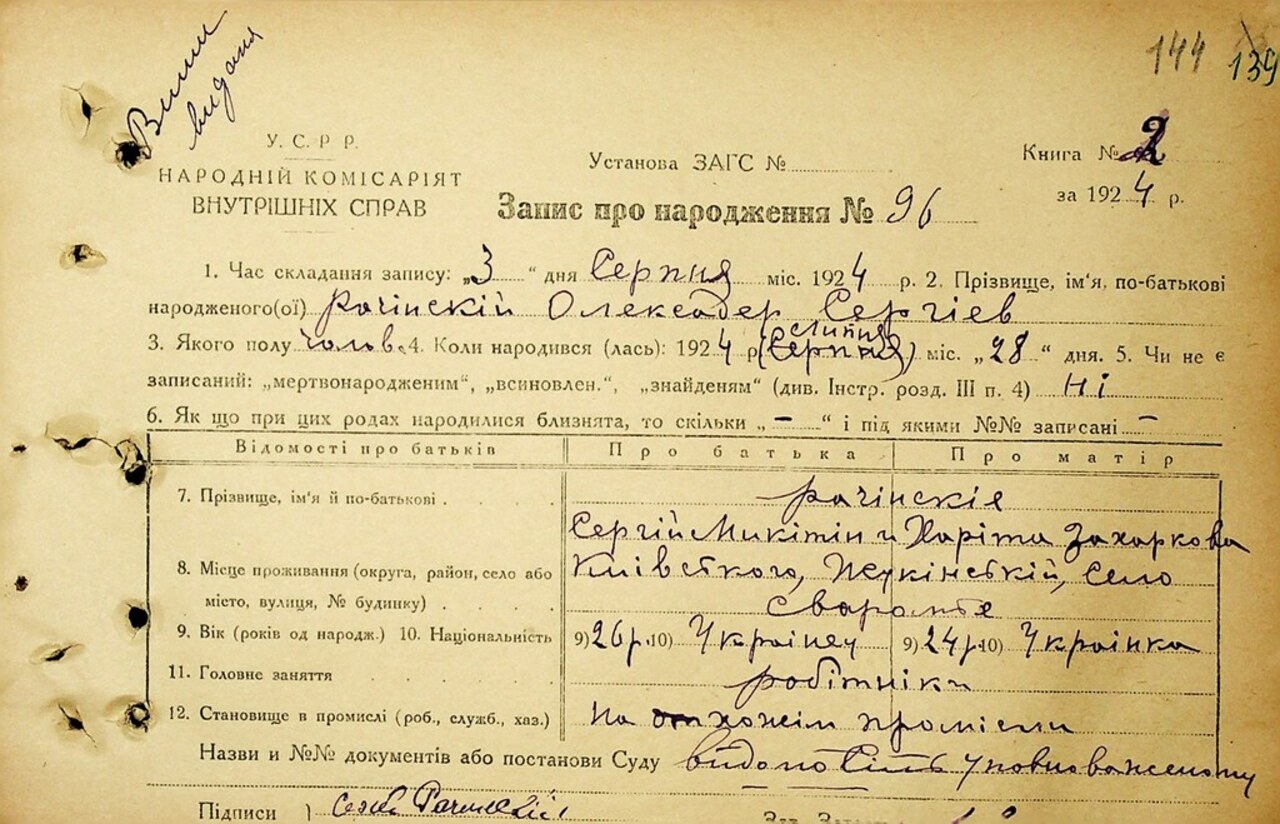 144 139
Виписи
видана
У. С. Р Р.
НАРОДНІЙ КОМІСАРІЯТ
ВНУТРІШНІХ СПРАВ
Установа ЗАГС №
Книга № 2
за 1924 р.
Запис про народження № 96
1. Час складання запису: „3“ дня Серпня міс. 1924 р. 2. Прізвище, ім'я, по-батькові
народженого(ої) Рачінский Олександер Сергіев
липня
3. Якого полу чолов. 4. Коли народився (лась): 1924 р. (Серпня) міс. „28“ дня. 5. Чи не є
записаний: „мертвонародженим“, „всиновлен.“, „знайденям“ (див. Інстр. розд. III п. 4) Ні
6. Як що при цих родах народилися близнята, то скільки „–“ і під якими №№ записані –
Відомості про батьків Про батька Про матір
7. Прізвище, ім'я й по-батькові . . . . Рачінские
Сергій Микітін и Харіта Захаркова
8. Місце проживання (округа, район, село або Киівського, Жукінській, село
місто, вулиця, № будинку) . . . . Сваромье
9. Вік (років од народж.) 10. Національність 9) 26 р. 10) Украінец 9) 24 р. 10) Украінка
11. Головне заняття . . . . . . робітники
12. Становище в промислі (роб., служб., хаз.) На отхожім промісли
Назви и №№ документів або постанови Суду уповноваженому
Підписи )